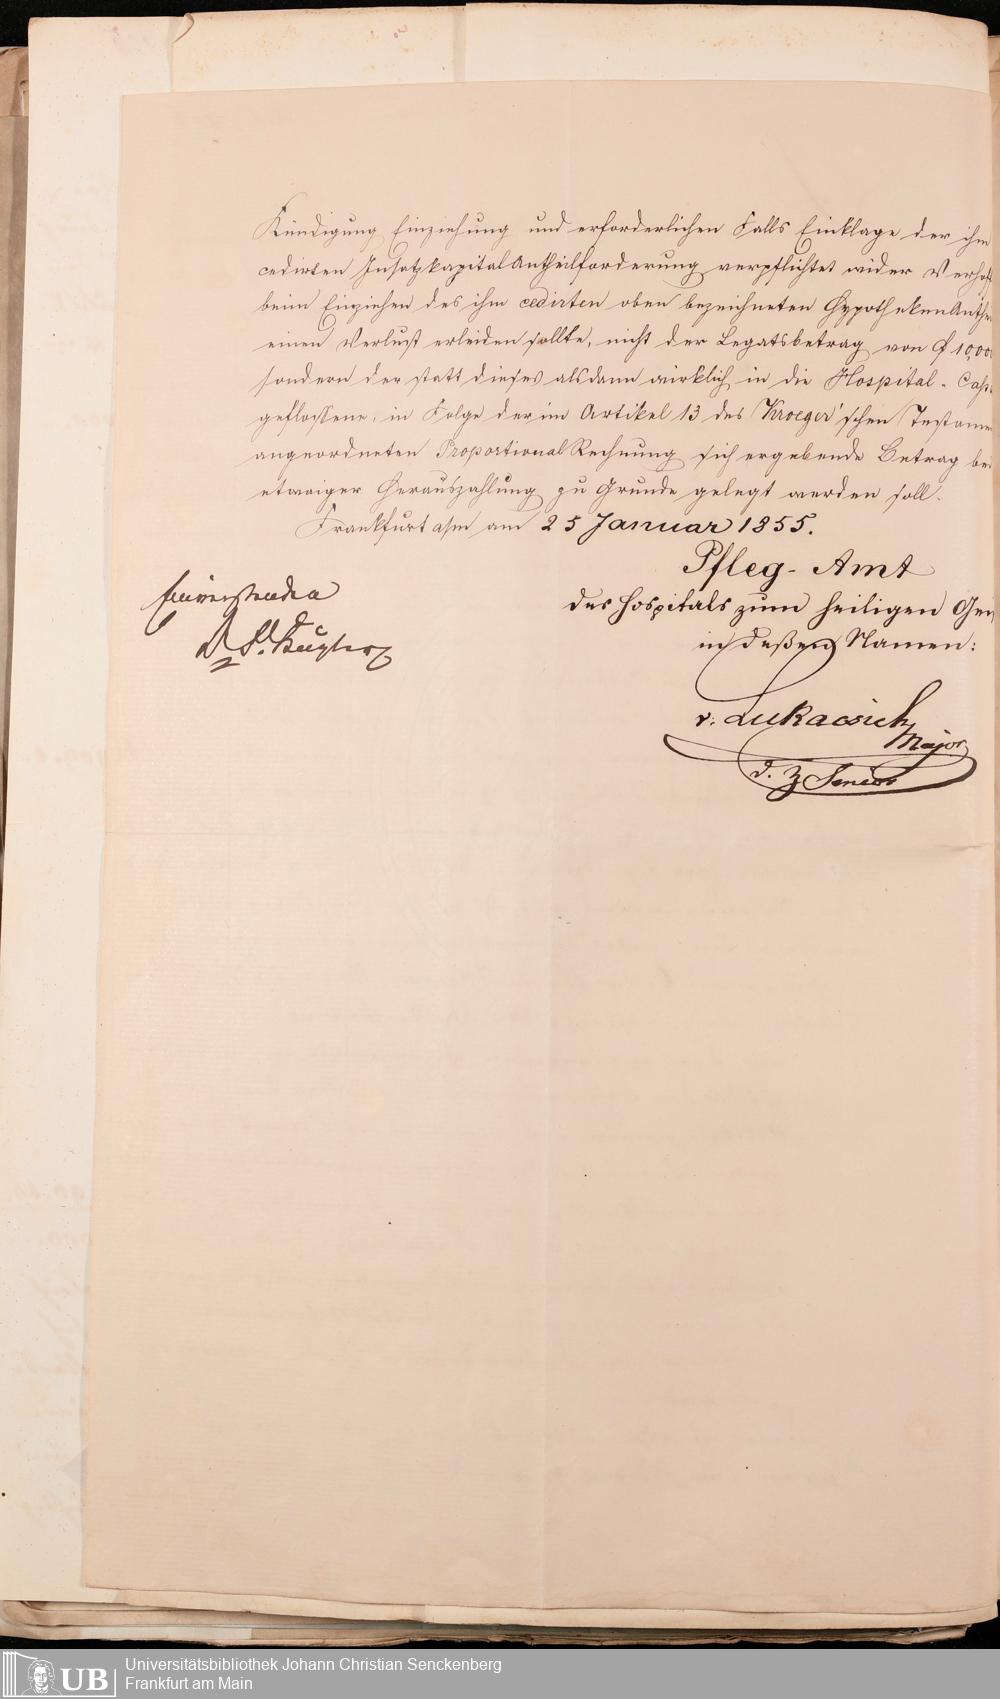 Kündigung Einziehung und erforderlichen Falls Einklage der ihm
cedirten Insatzkapital Antheilforderung verpflichtet wider Verhof
beim Einziehen des ihm cedirten oben bezeichneten Hypotheken Anthe
einen Verlust erleiden sollte, nicht der Legatsbetrag von f 10,000
sondern der statt dieses alsdann wirklich in die Hospital - Cas
geflossene, in Folge der im Artikel 13 des Kroeger'schen Testame
angeordneten Proportional Rechnung sich ergebende Betrag bei
etwaiger Herauszahlung zu Grunde gelegt werden soll.
Frankfurt a/m am 25 Januar 1855.
Pfleg - Amt
des Hospitals zum heiligen Gei
in deßen Namen:
Einverstanden
v. Lukacsich
Major
d. Z Senior
UB
Universitätsbibliothek Johann Christian Senckenberg
Frankfurt am Main